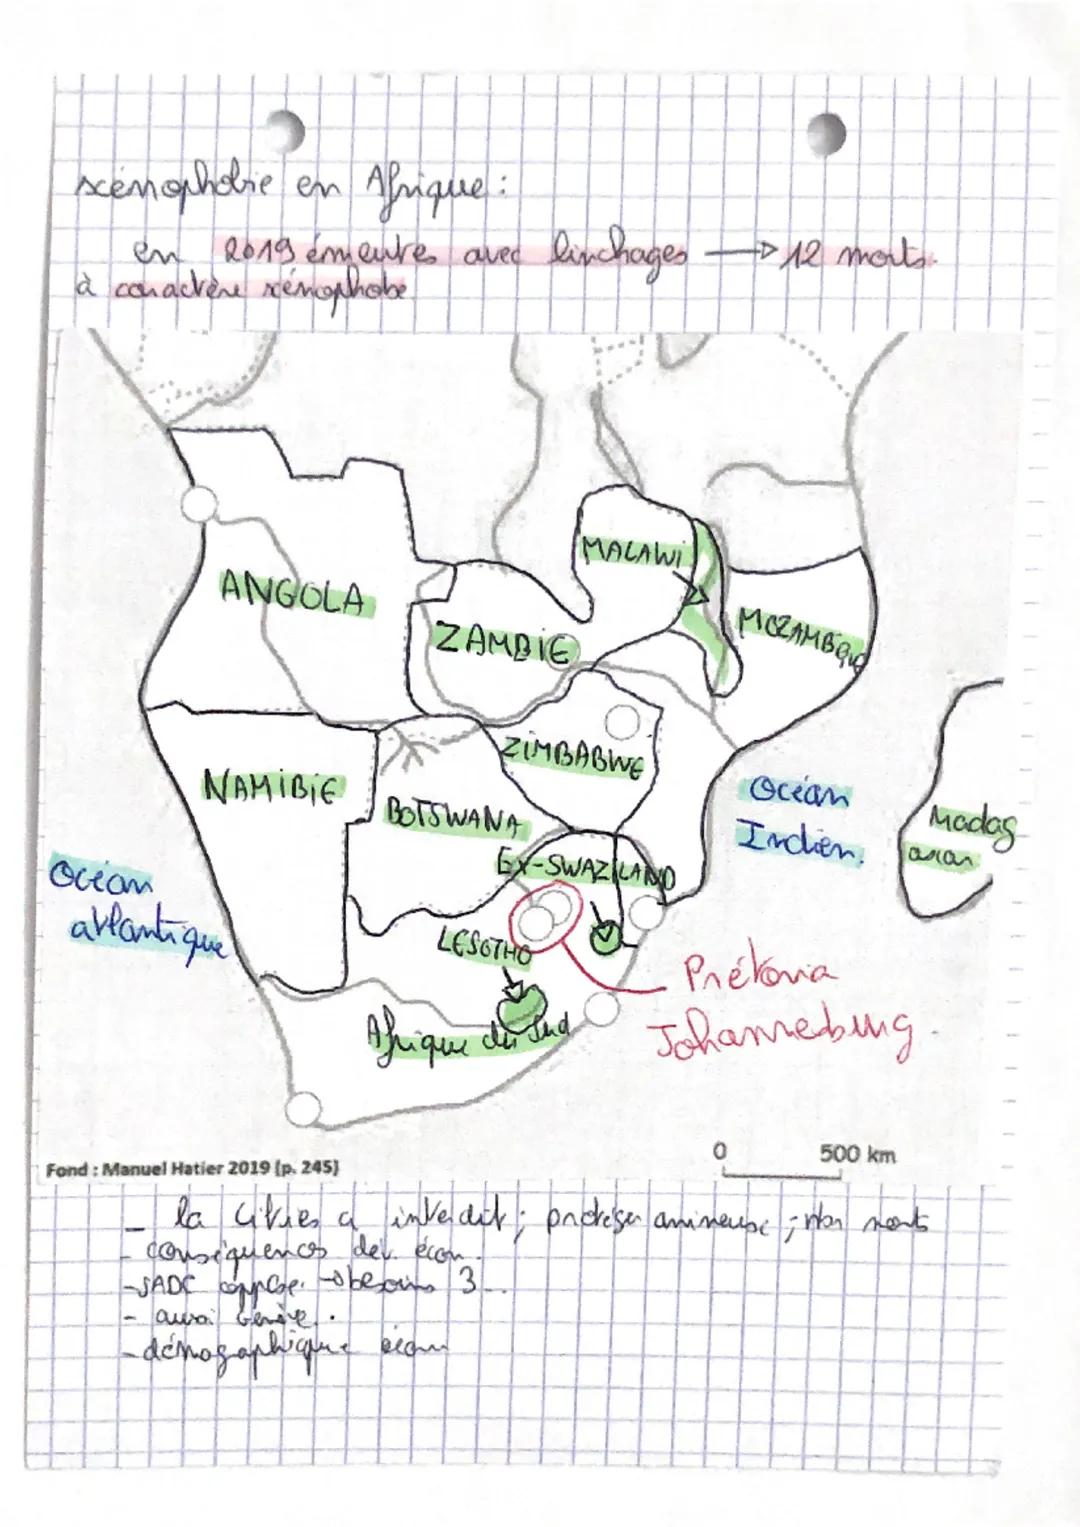 scénophobie en Afrique :
en 2019 émeutes avec linchages → 12 morts.
à caractère xénophobe
MALAWI
ANGOLA
ZAMBIE
MOZAMBIQUE
ZIMBABWE
NAMIBIE
BOTSWANA
Océan
Indien.
Madag
ascar
EX-SWAZILAND
Océan
atlantique
LESOTHO
Prétoria
Johannesburg.
Afrique du Sud
0 500 km
Fond : Manuel Hatier 2019 (p. 245)
- la a interdit ; ;
- conséquences dev. écon.
- SADC oppose → besoins 3...
- aussi
- démographique écon